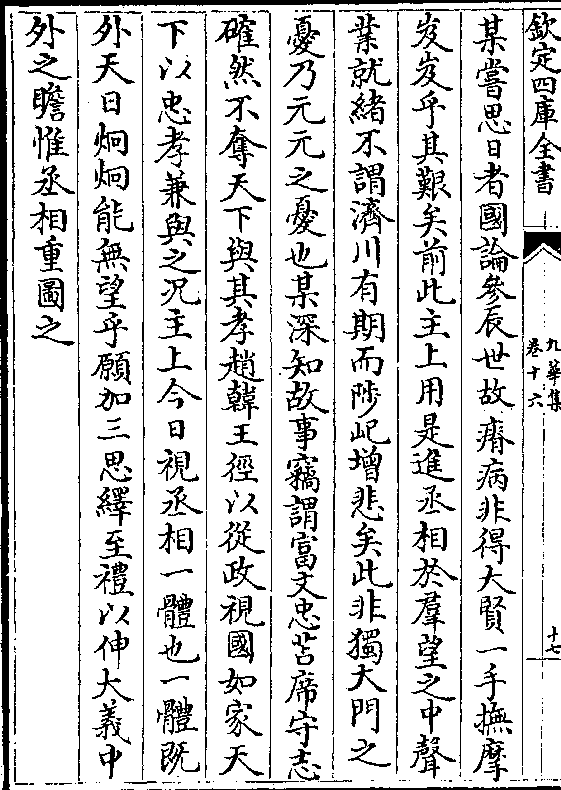 欽定四庫全書
九華集
卷十六
十七
某嘗思日者國論參辰世故瘠病非得大賢一手撫摩
岌岌乎其艱矣前此主上用是進丞相於羣望之中聲
業就緒不謂濟川有期而陟屺增悲矣此非獨大門之
憂乃元元之憂也某深知故事竊謂富文忠苫席守志
確然不奪天下與其孝趙韓王徑以從政視國如家天
下以忠孝兼與之況主上今日視丞相一體也一體既
外天日炯炯能無望乎願加三思繹至禮以伸大義中
外之瞻惟丞相重圖之